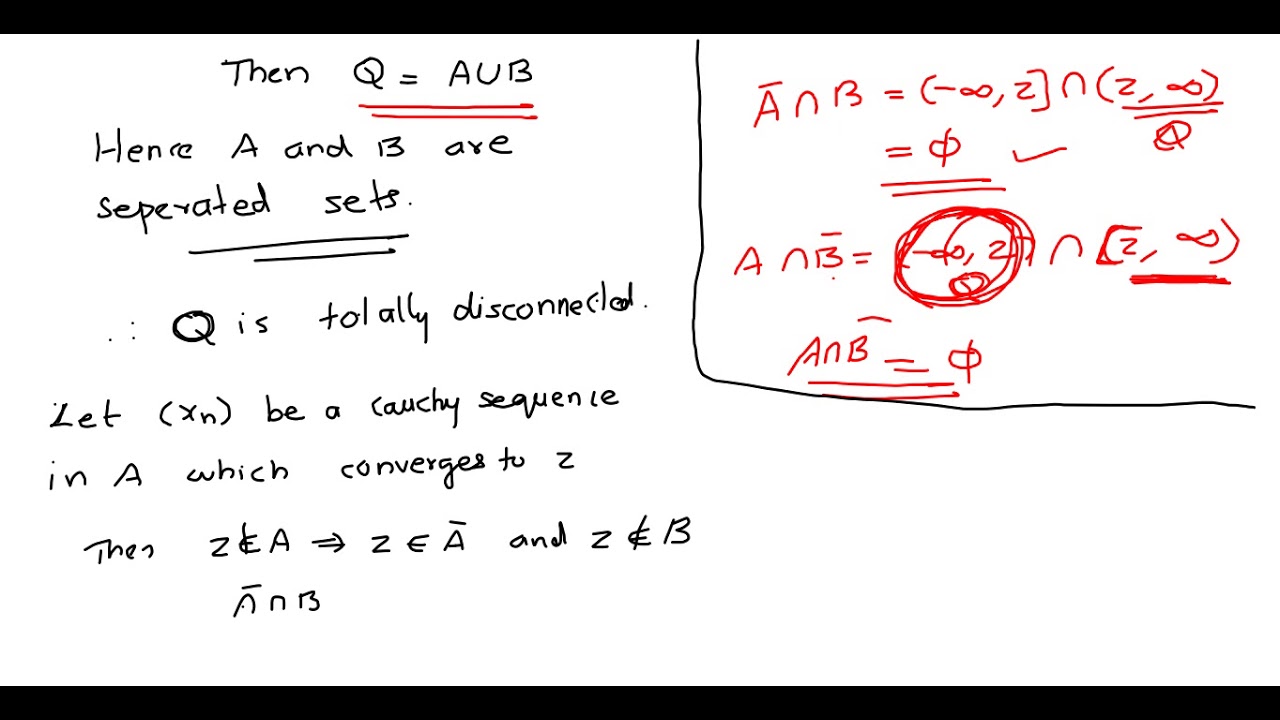 Then Q = A∪B
Hence A and B are
seperated sets.
∴ Q is totally disconnected.
Let (xn) be a cauchy sequence
in A which converges to z
Then z∉A ⇒ z ∈ Ā and z ∉ B
Ā ∩ B
Ā ∩ B = (-∞, z] ∩ (z, ∞)
Q
= ϕ ✓
A ∩ B̄ = (-∞, z) ∩ [z, ∞)
Q
A∩B̄ = ϕ